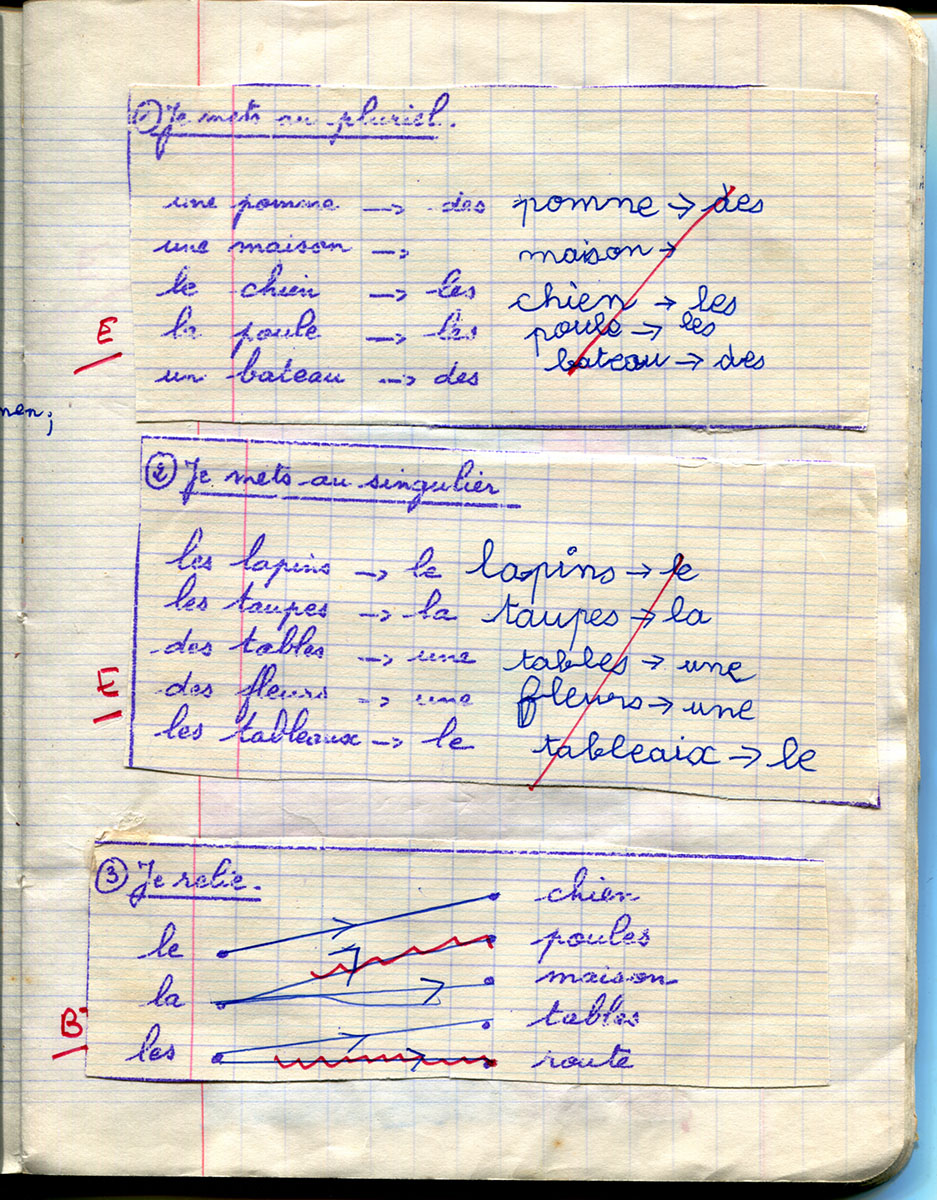 ① Je mets au pluriel.
une pomme → des pomne → des
une maison → maison →
le chien → les chien → les
E
la poule → les poule → les
un bateau → des bateau → des
nen;
② Je mets au singulier
les lapins → le lapins → le
les taupes → la taupes → la
des tables → une tables → une
E
des fleurs → une fleurs → une
les tableaux → le tableaix → le
③ Je relie.
chien
le poules
la maison
B-
tables
les route